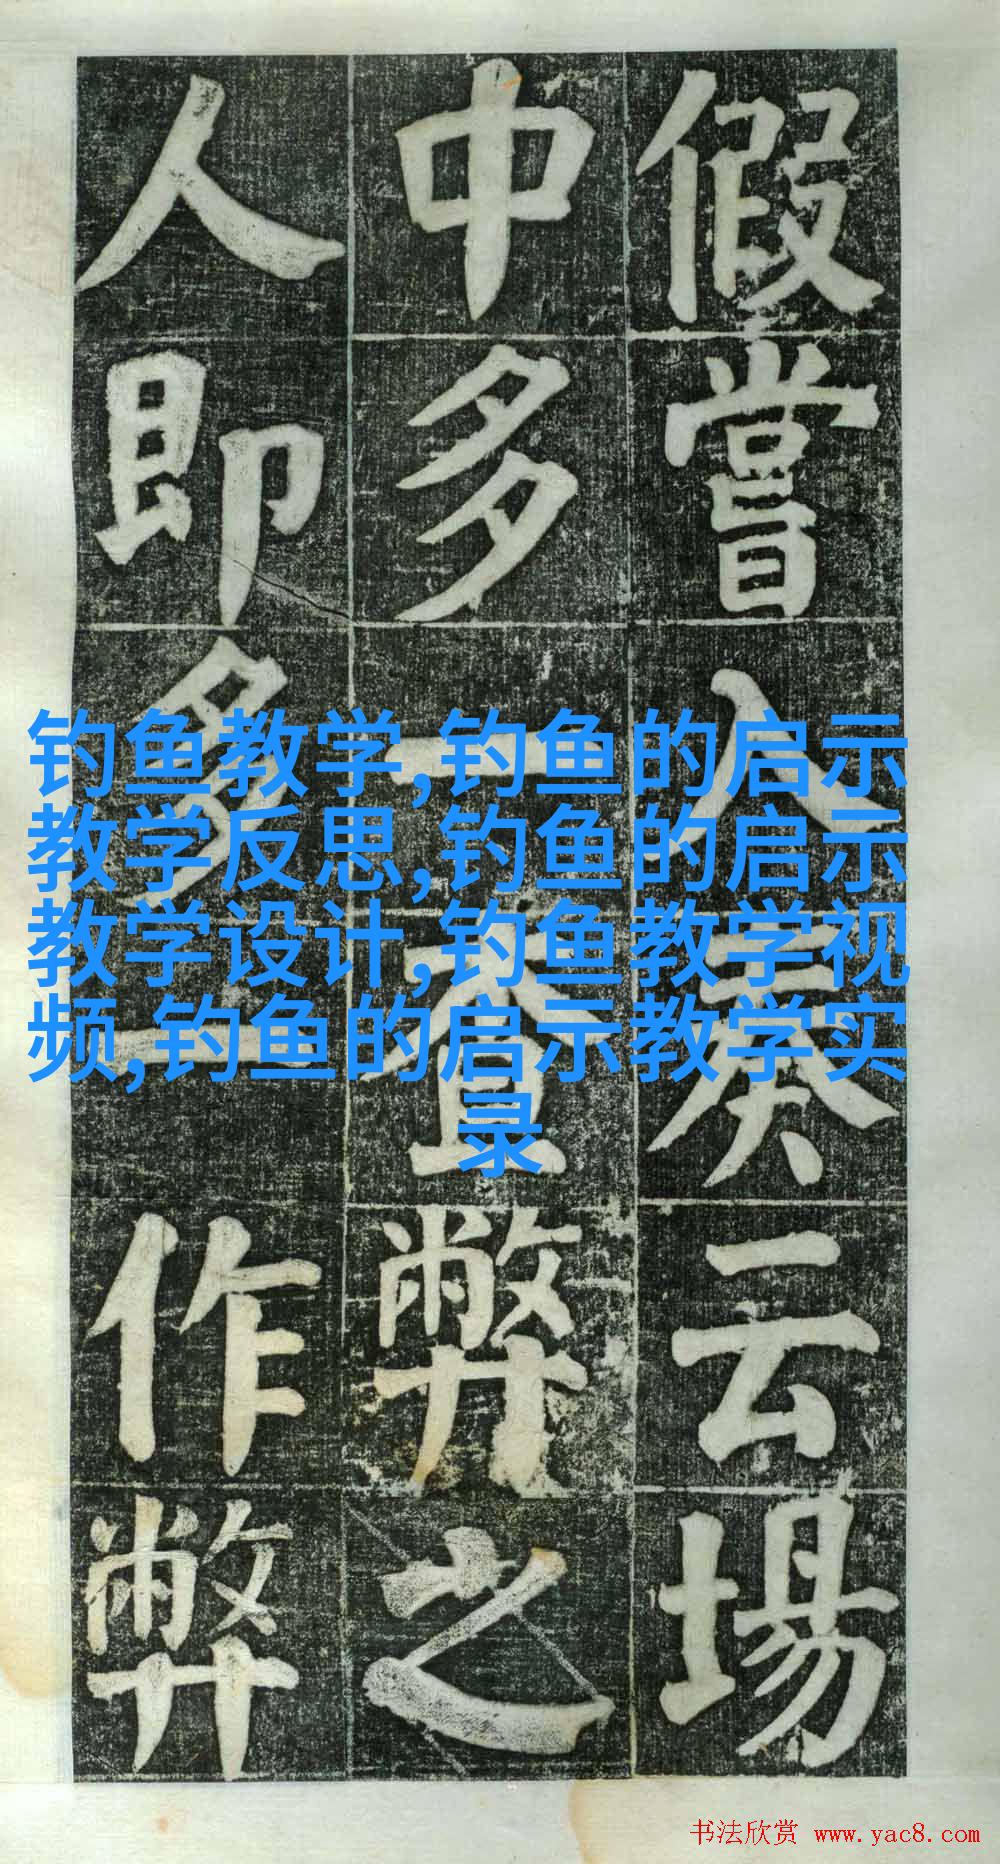 假嘗入奏云場
中多一查弊之
人即多一作弊
钓鱼教学,钓鱼的启示
教学反思,钓鱼的启示
教学设计,钓鱼教学视
频,钓鱼的启示教学实
录
书法欣赏 www.yac8.com